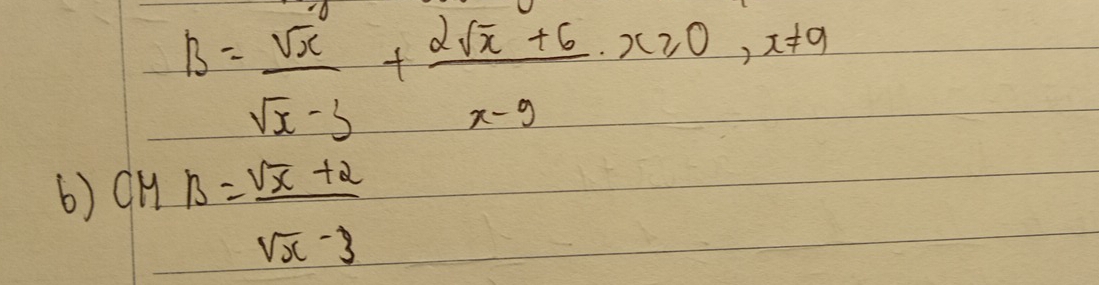 B = √x / (√x - 3) + (2√x + 6) / (x - 9) . x ≥ 0 , x ≠ 9
b) CM B = (√x + 2) / (√x - 3)